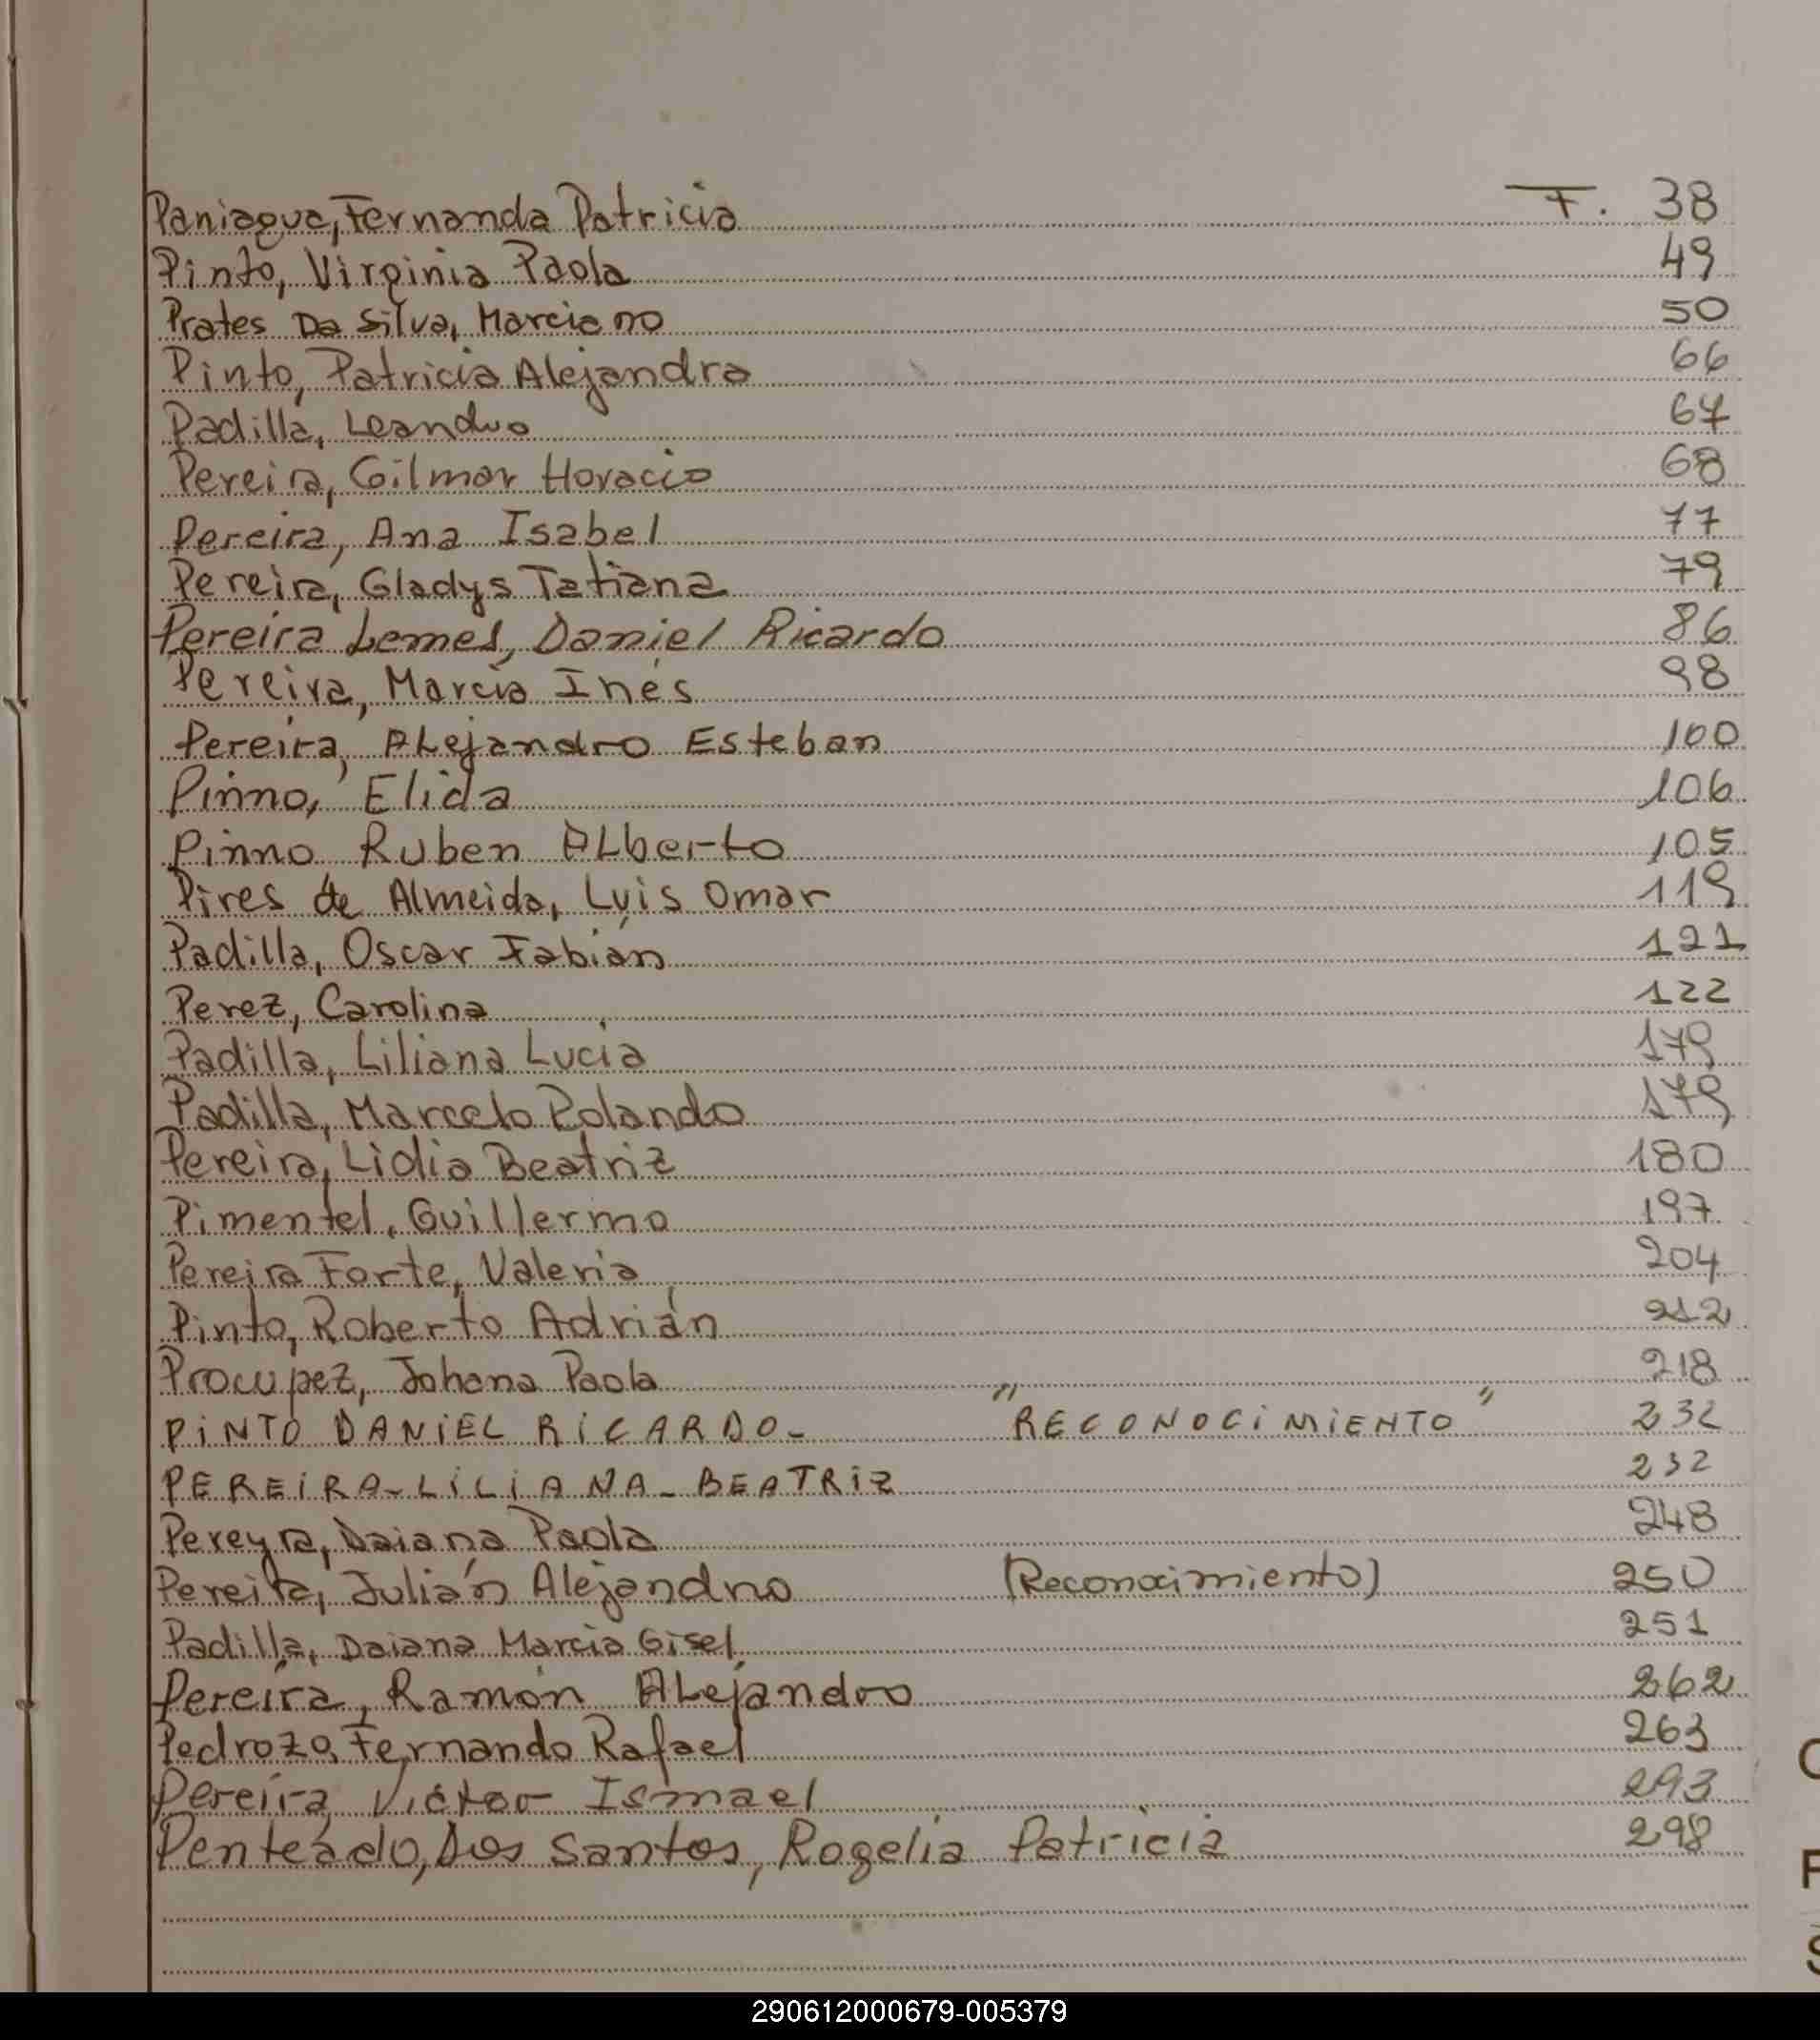 Paniagua, Fernanda Patricia F. 38
Pinto, Virginia Paola 49
Prates Da Silva, Marciano 50
Pinto, Patricia Alejandra 66
Padilla, Leandro 67
Pereira, Gilmar Horacio 68
Pereira, Ana Isabel 77
Pereira, Gladys Tatiana 79
Pereira Lemes, Daniel Ricardo 86
Pereira, Marcia Inés 98
Pereira, Alejandro Esteban 100
Pinno, Elida 106
Pinno Ruben Alberto 105
Pires de Almeida, Luis Omar 119
Padilla, Oscar Fabián 121
Perez, Carolina 122
Padilla, Liliana Lucía 179
Padilla, Marcelo Rolando 179
Pereira, Lidia Beatriz 180
Pimentel, Guillermo 197
Pereira Forte, Valeria 204
Pinto, Roberto Adrián 212
Procupez, Johana Paola 218
PINTO DANIEL RICARDO- "RECONOCIMIENTO" 232
PEREIRA-LILIANA-BEATRIZ 232
Pereyra, Daiana Paola 248
Pereira, Julián Alejandro (Reconocimiento) 250
Padilla, Daiana Marcia Gisel 251
Pereira, Ramón Alejandro 262
Pedrozo, Fernando Rafael 263
Pereira Victor Ismael 293
Penteado, Dos Santos, Rogelia Patricia 298
290612000679-005379